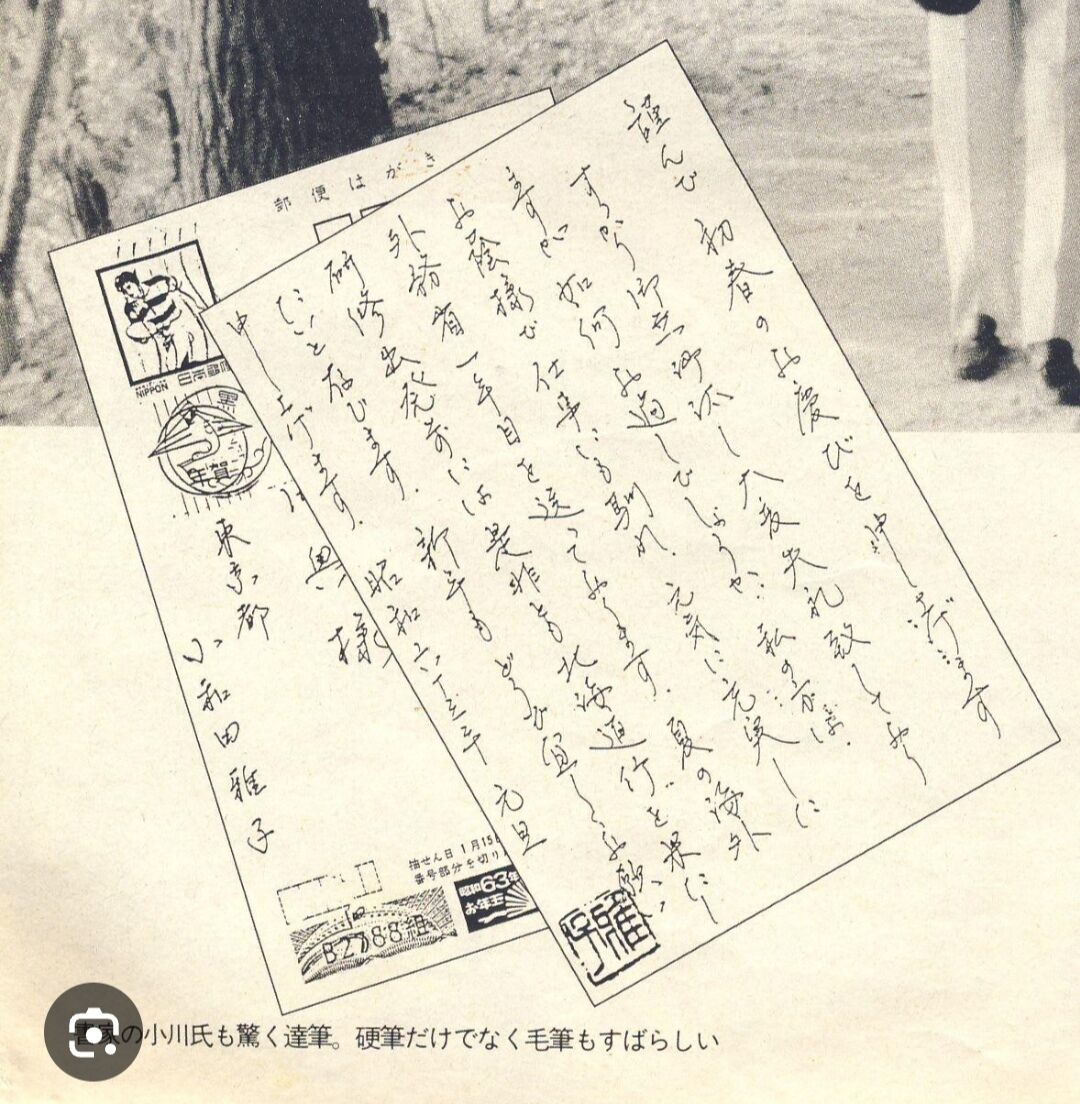 謹んで初春のお慶びを申し上げます
すっかり御無沙汰し大変失礼致しており
ますが如何お過しでしょうか。私の方は、
お蔭様で仕事にも馴れ、元気に充実した
外務省一年目を送っております。夏の海外
研修出発前には是非とも北海道行を果たし
たいと存じます。新年もどうぞ宜しくお願い
申し上げます。
昭和六十三年 元旦
雅子
郵便はがき
NIPPON
日本郵便
年賀
様
東京都
小和田雅子
抽せん日 1月15日
番号部分を切り
昭和63年
お年玉
B2788組
書家の小川氏も驚く達筆。硬筆だけでなく毛筆もすばらしい